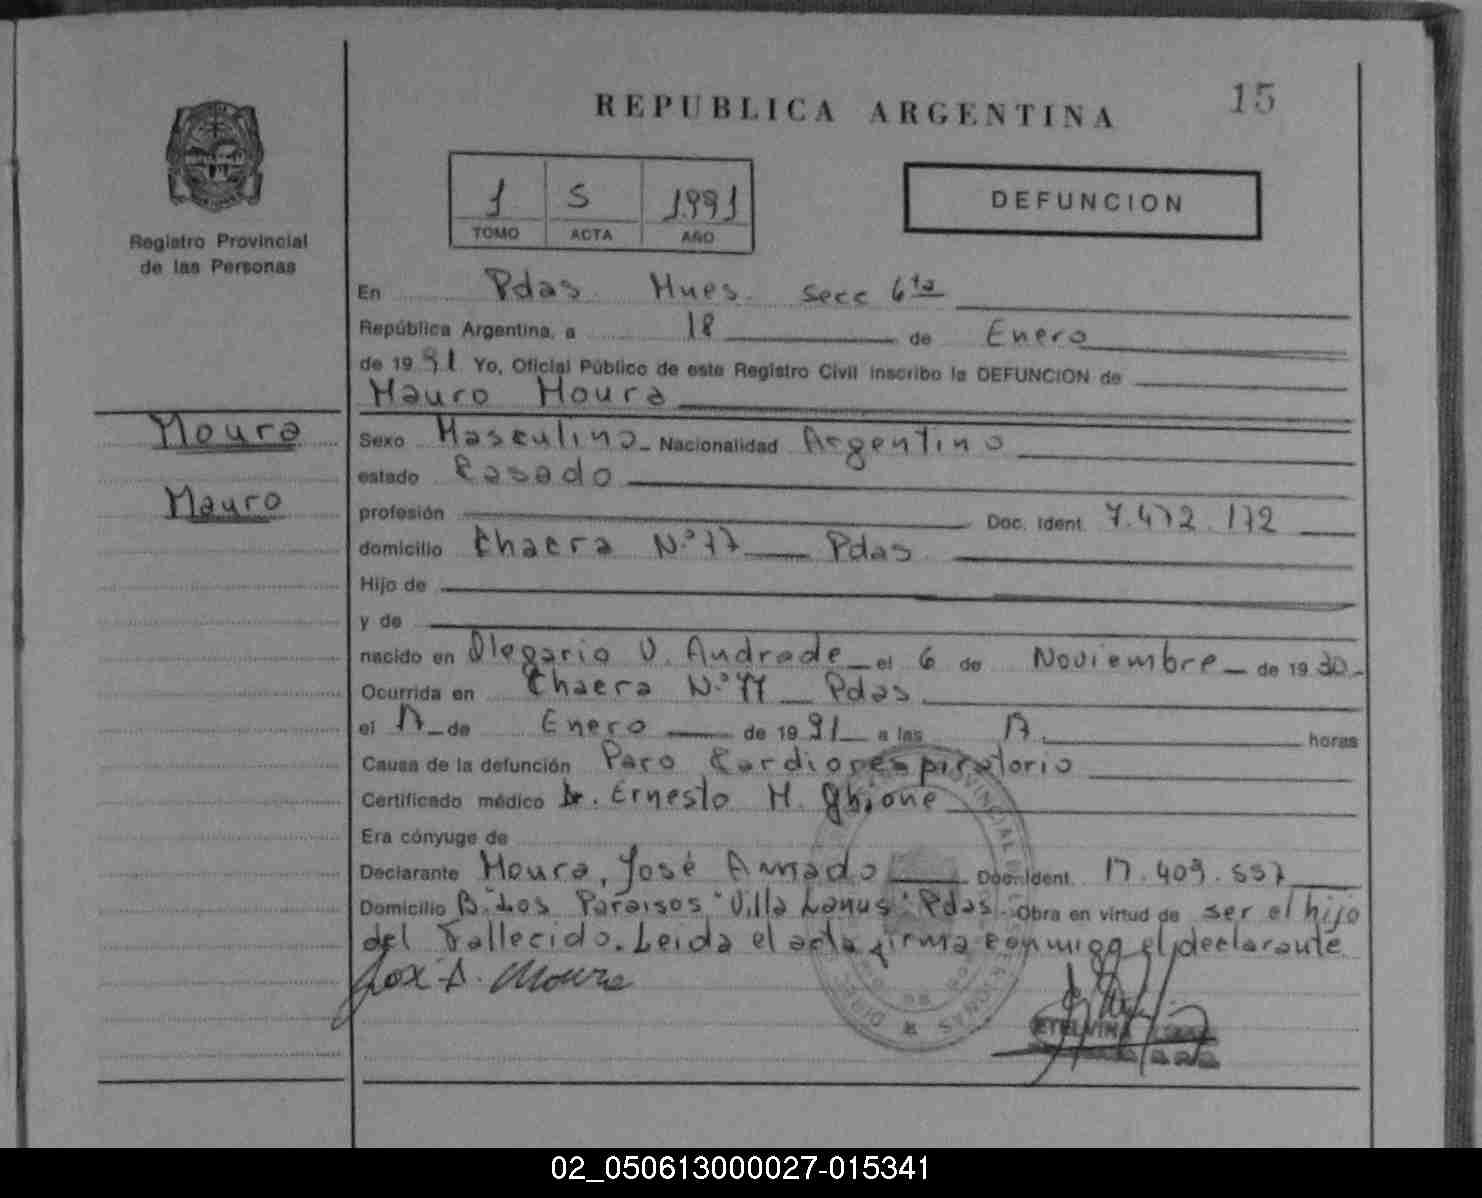 15
REPUBLICA ARGENTINA
Registro Provincial
de las Personas
1 5 1991
TOMO ACTA AÑO
DEFUNCION
En Pdas. Mnes. Secc 6ta
República Argentina, a 18 de Enero
de 1991 Yo, Oficial Público de este Registro Civil inscribo la DEFUNCION de
Mauro Moura
Moura
Mauro
Sexo Masculino Nacionalidad Argentino
estado Casado
profesión Doc. Ident. 7.472.172
domicilio Chacra N.º 77 Pdas
Hijo de
y de
nacido en Olegario V. Andrade el 6 de Noviembre de 1930
Ocurrida en Chacra N.º 77 Pdas
el 17 de Enero de 1991 a las 17 horas
Causa de la defunción Paro Cardiorespiratorio
Certificado médico Dr. Ernesto H. Ghione
Era cónyuge de
Declarante Moura, José Amado Doc. Ident. 17.409.557
Domicilio B. Los Paraisos "Villa Lanus" Pdas. Obra en virtud de ser el hijo
del Fallecido. Leida el acta firma conmigo el declarante
José A. Moura
ETELVINA
02_050613000027-015341